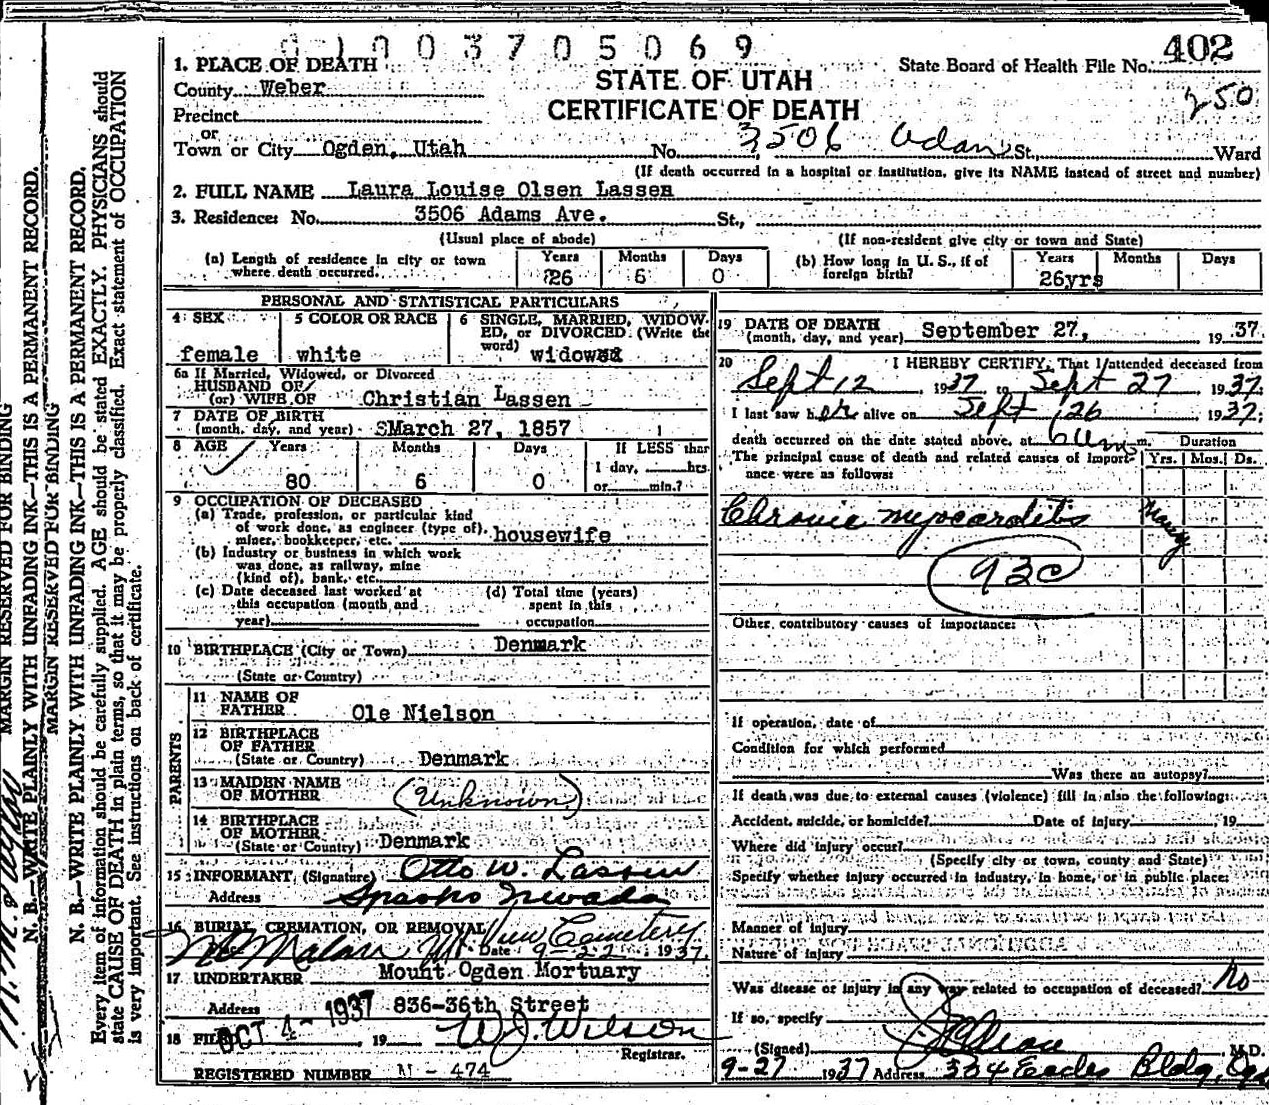 0 1 0 0 3 7 0 5 0 6 9
402
250
1. PLACE OF DEATH
County Weber
Precinct
or
Town or City Ogden, Utah
STATE OF UTAH
CERTIFICATE OF DEATH
State Board of Health File No.
No. 3506 St., Ward
(If death occurred in a hospital or institution, give its NAME instead of street and number)
2. FULL NAME Laura Louise Olsen Lassen
3. Residence: No. 3506 Adams Ave. St.,
(Usual place of abode)
(If non-resident give city or town and State)
(a) Length of residence in city or town where death occurred. Years 26 Months 6 Days 0
(b) How long in U. S., if of foreign birth? Years 26yrs Months Days
PERSONAL AND STATISTICAL PARTICULARS
4 SEX female
5 COLOR OR RACE white
6 SINGLE, MARRIED, WIDOWED, or DIVORCED. (Write the word) widowed
6a If Married, Widowed, or Divorced
HUSBAND OF
(or) WIFE OF Christian Lassen
7 DATE OF BIRTH
(month, day, and year) SMarch 27, 1857
8 AGE Years 80 Months 6 Days 0
If LESS than
1 day, hrs.
or min.?
9 OCCUPATION OF DECEASED
(a) Trade, profession, or particular kind
of work done, as engineer (type of),
miner, bookkeeper, etc. housewife
(b) Industry or business in which work
was done, as railway, mine
(kind of), bank, etc.
(c) Date deceased last worked at
this occupation (month and
year)
(d) Total time (years)
spent in this
occupation
10 BIRTHPLACE (City or Town) Denmark
(State or Country)
PARENTS
11 NAME OF
FATHER Ole Nielson
12 BIRTHPLACE
OF FATHER
(State or Country) Denmark
13 MAIDEN NAME
OF MOTHER (Unknown)
14 BIRTHPLACE
OF MOTHER
(State or Country) Denmark
15 INFORMANT (Signature) Otto W. Lassen
Address Sparks Nevada
16 BURIAL, CREMATION, OR REMOVAL
Mt View Cemetery
Date 1937
17 UNDERTAKER Mount Ogden Mortuary
Address 836-36th Street
18 FILED OCT 4 - 1937 19 W. J. Wilson
Registrar.
REGISTERED NUMBER N - 474
19 DATE OF DEATH
(month, day, and year) September 27, 19 37
20 I HEREBY CERTIFY, That I attended deceased from
Sept 12 1937 to Sept 27 1937
I last saw her alive on Sept 26 1937;
death occurred on the date stated above, at m.
The principal cause of death and related causes of importance were as follows:
Duration
Yrs. Mos. Ds.
Chronic myocarditis many
93c
Other contributory causes of importance:
If operation, date of
Condition for which performed
Was there an autopsy?
If death was due to external causes (violence) fill in also the following:
Accident, suicide, or homicide? Date of injury 19
Where did injury occur?
(Specify city or town, county and State)
Specify whether injury occurred in industry, in home, or in public place:
Manner of injury
Nature of injury
Was disease or injury in any way related to occupation of deceased? No
If so, specify
(Signed) M.D.
9-27 1937 Address Eccles Bldg, Ogd
MARGIN RESERVED FOR BINDING
N. B.—WRITE PLAINLY WITH UNFADING INK—THIS IS A PERMANENT RECORD.
MARGIN RESERVED FOR BINDING
N. B.—WRITE PLAINLY WITH UNFADING INK—THIS IS A PERMANENT RECORD.
Every item of information should be carefully supplied. AGE should be stated EXACTLY. PHYSICIANS should
state CAUSE OF DEATH in plain terms, so that it may be properly classified. Exact statement of OCCUPATION
is very important. See instructions on back of certificate.